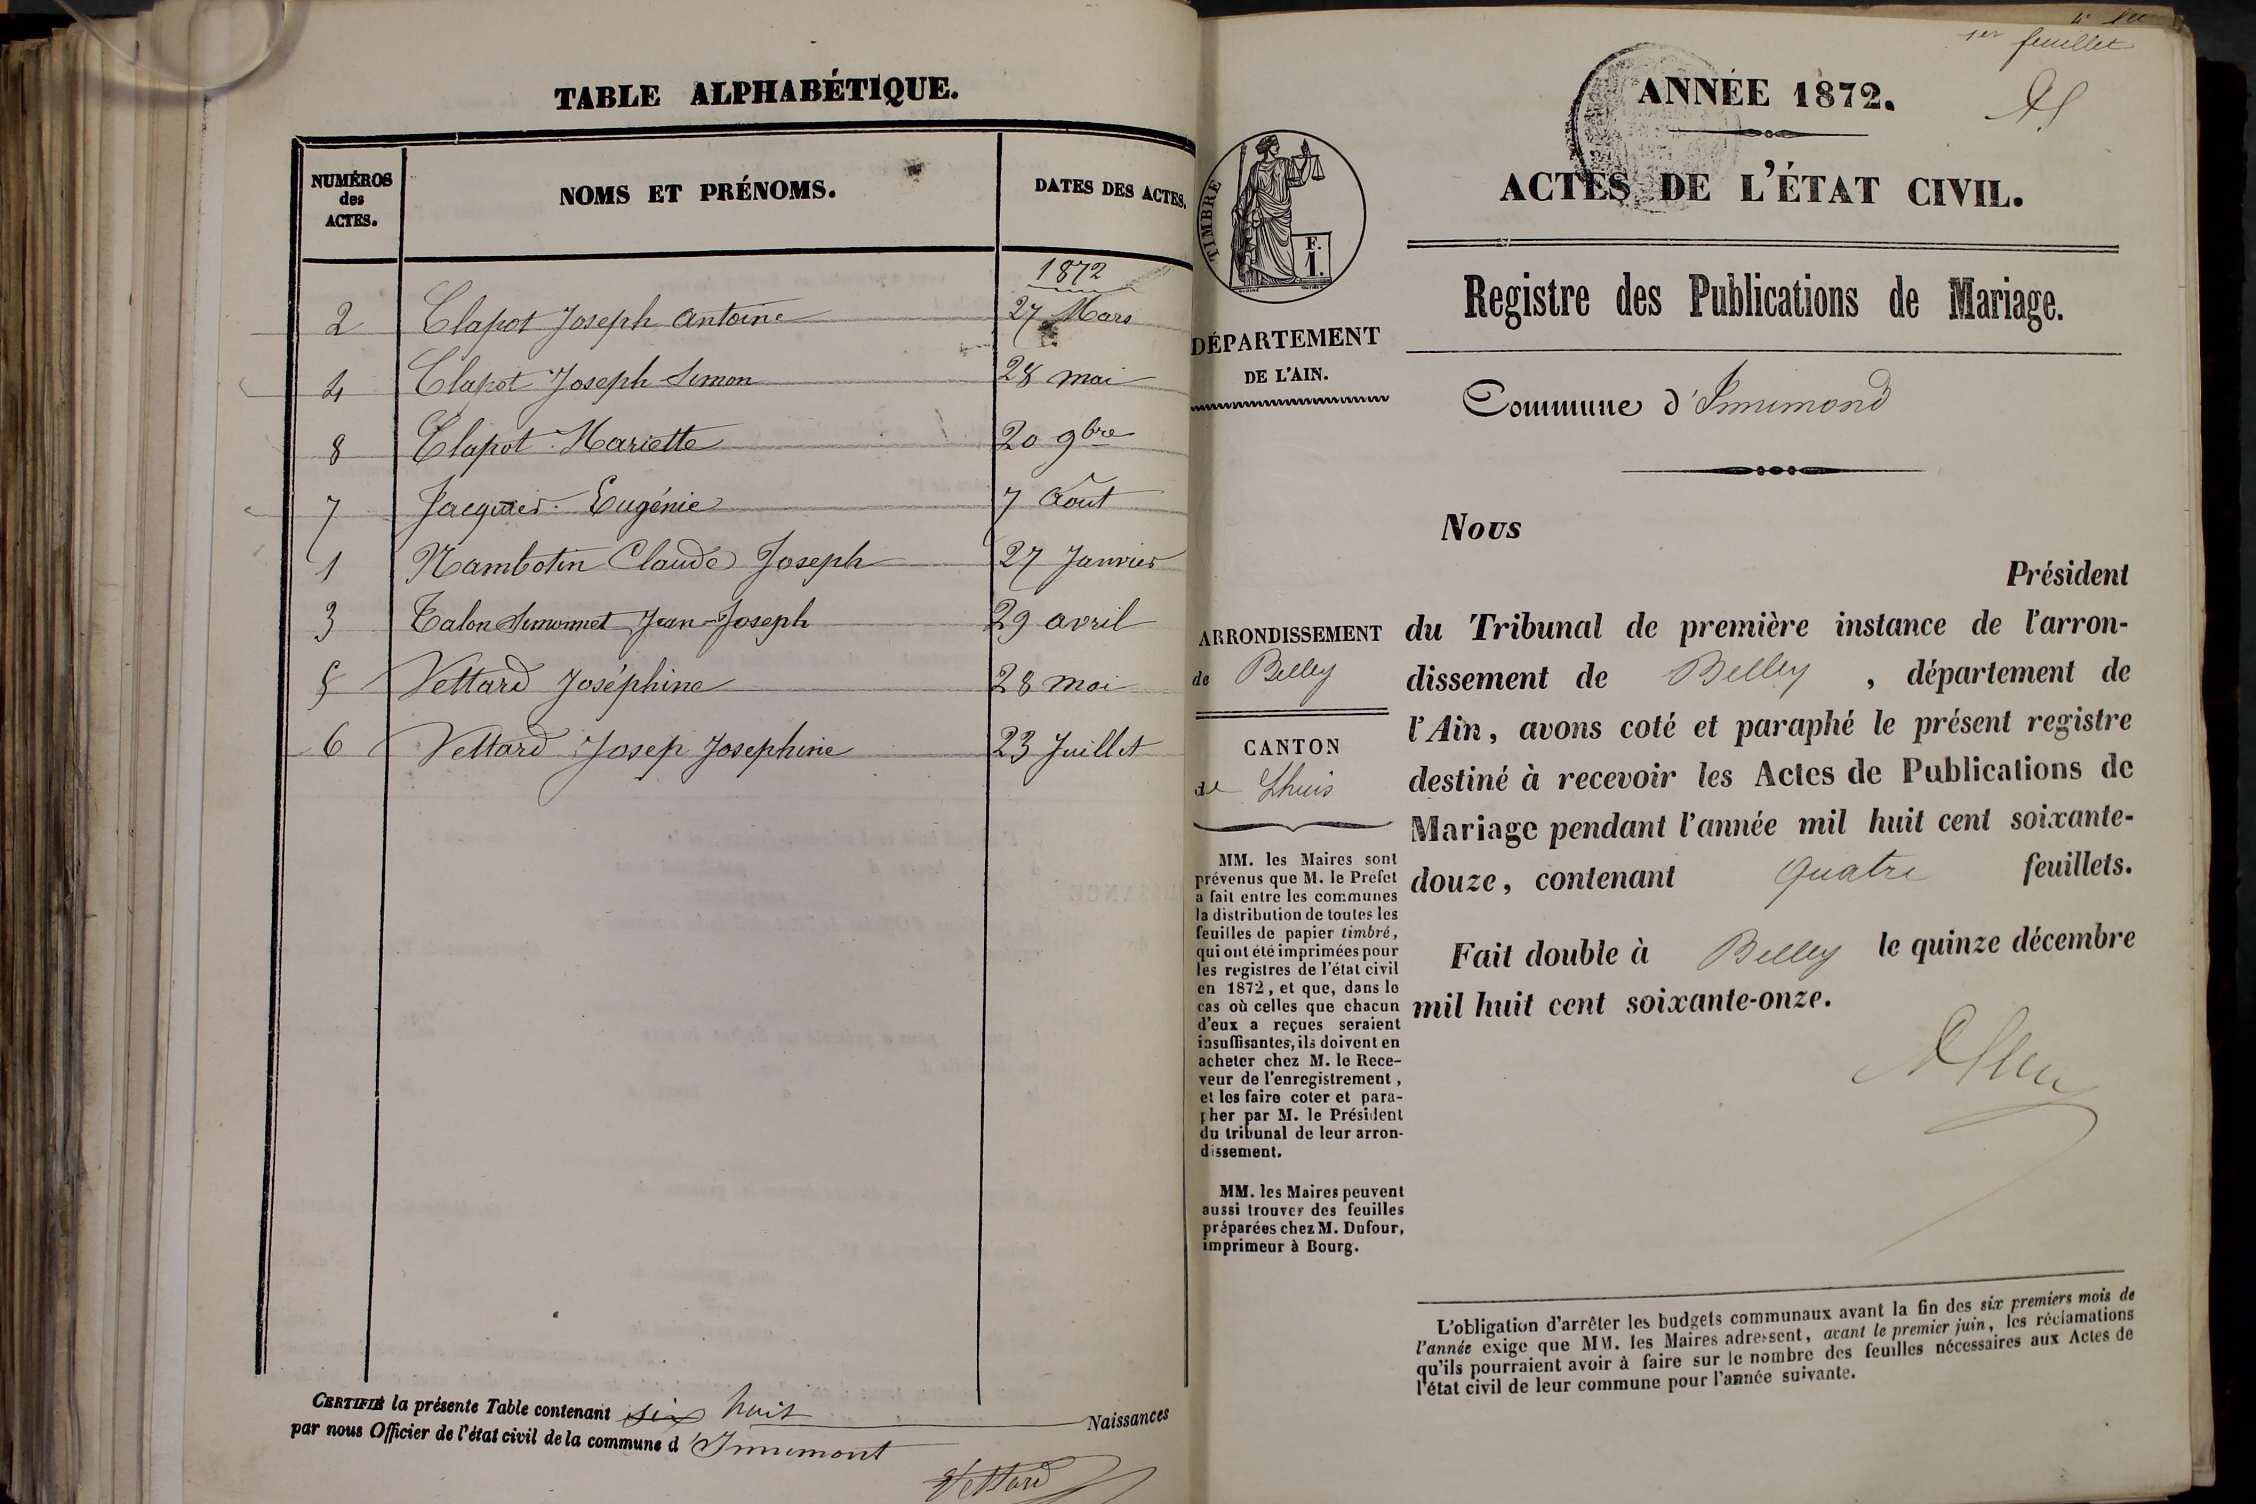 TABLE ALPHABÉTIQUE.
NUMÉROS des ACTES. NOMS ET PRÉNOMS. DATES DES ACTES.
1872
2 Clapot Joseph Antoine 27 Mars
4 Clapot Joseph Simon 28 mai
8 Clapot Mariette 20 9bre
7 Jacquier Eugénie 7 Août
1 Nambotin Claude Joseph 27 Janvier
3 Talon Simonnet Jean-Joseph 29 avril
5 Vettard Joséphine 28 mai
6 Vettard Josep Josephine 23 Juillet
CERTIFIÉ la présente Table contenant six huit Naissances
par nous Officier de l'état civil de la commune d'Innimont
Vettard
1er feuillet
ANNÉE 1872.
ACTES DE L'ÉTAT CIVIL.
Registre des Publications de Mariage.
Commune d'Innimond
TIMBRE
F.
1.
DÉPARTEMENT
DE L'AIN.
ARRONDISSEMENT
de Belley
CANTON
de Lhuis
MM. les Maires sont
prévenus que M. le Préfet
a fait entre les communes
la distribution de toutes les
feuilles de papier timbré,
qui ont été imprimées pour
les registres de l'état civil
en 1872, et que, dans le
cas où celles que chacun
d'eux a reçues seraient
insuffisantes, ils doivent en
acheter chez M. le Rece-
veur de l'enregistrement,
et les faire coter et para-
pher par M. le Président
du tribunal de leur arron-
dissement.
MM. les Maires peuvent
aussi trouver des feuilles
préparées chez M. Dufour,
imprimeur à Bourg.
Nous
Président
du Tribunal de première instance de l'arron-
dissement de Belley, département de
l'Ain, avons coté et paraphé le présent registre
destiné à recevoir les Actes de Publications de
Mariage pendant l'année mil huit cent soixante-
douze, contenant quatre feuillets.
Fait double à Belley le quinze décembre
mil huit cent soixante-onze.
L'obligation d'arrêter les budgets communaux avant la fin des six premiers mois de
l'année exige que MM. les Maires adressent, avant le premier juin, les réclamations
qu'ils pourraient avoir à faire sur le nombre des feuilles nécessaires aux Actes de
l'état civil de leur commune pour l'année suivante.